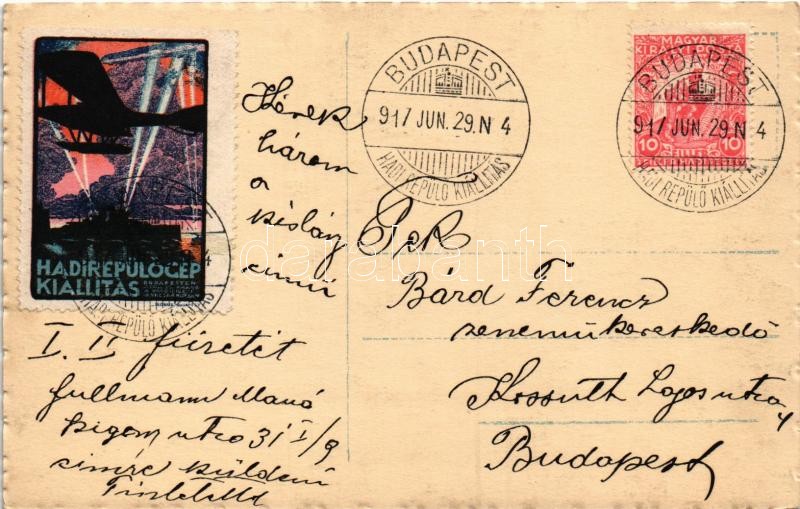 HADIREPÜLŐGÉP
KIÁLLÍTÁS
BUDAPEST
917 JUN. 29. N 4
HADI REPÜLŐ KIÁLLÍTÁS
MAGYAR
KIR. POSTA
10 10
BUDAPEST
917 JUN. 29. N 4
HADI REPÜLŐ KIÁLLÍTÁS
4
HADI REPÜLŐ KIÁLLÍTÁS
Kérek
három
a
kislány
című
I. II füzetét
Gullmann Manó
utca 31 I/9
címre küldeni
Bárd Ferencz
zeneműkereskedő
Kossuth Lajos utca 4
Budapest
darabanth